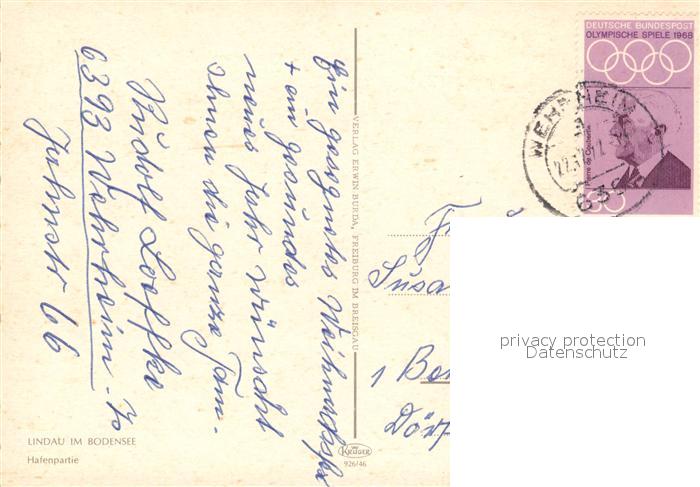 DEUTSCHE BUNDESPOST
OLYMPISCHE SPIELE 1968
Pierre de Coubertin
30
WEHRHEIM
639
Ein gesegnetes Weihnachtsfest
+ ein gesundes
neues Jahr wünscht
Ihnen die ganze Fam.
Rudolf
6393 Wehrheim
66
VERLAG ERWIN BURDA, FREIBURG IM BREISGAU
Susa
1 Be
Dört
privacy protection
Datenschutz
LINDAU IM BODENSEE
Hafenpartie
KRÜGER
926/46